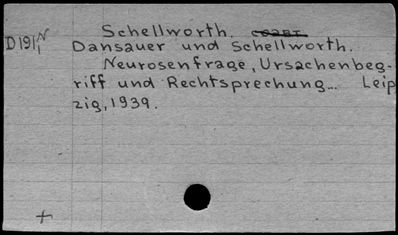 Schellworth.
D191N/1 Dansauer und Schellworth.
Neurosenfrage, Ursachenbeg-
riff und Rechtsprechung... Leip
zig, 1939.
+